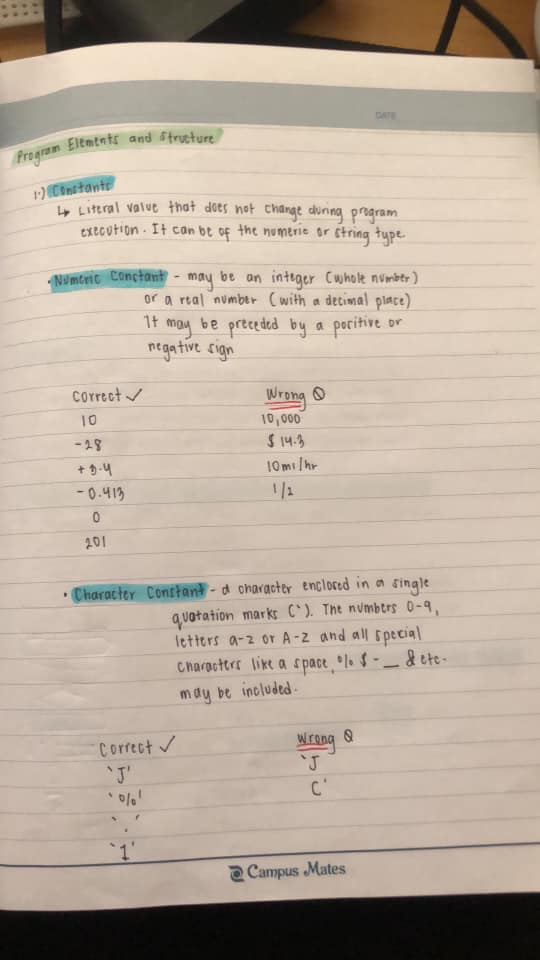 DATE
Program Elements and Structure
1.) Constants
↳ Literal value that does not change during program
execution. It can be of the numeric or string type.
• Numeric Constant - may be an integer (whole number)
or a real number (with a decimal place)
It may be preceded by a positive or
negative sign
Correct ✓ Wrong ⦸
10 10,000
-28 $ 14.3
+3.4 10mi/hr
-0.413 1/2
0
201
• Character Constant - a character enclosed in a single
quotation marks (`). The numbers 0-9,
letters a-z or A-Z and all special
characters like a space, % $ - _ & etc.
may be included.
Correct ✓ Wrong ⦸
`J' `J
`%' C'
`.'
`1'
Campus Mates